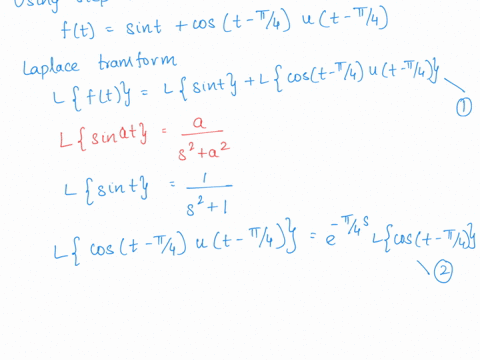 Using step
f(t) = sint + cos (t - π/4) u (t - π/4)
Laplace transform
L{f(t)} = L{sint} + L{cos(t-π/4) u(t-π/4)}
①
L{sinat} = a / s²+a²
L{sint} = 1 / s²+1
L{cos(t-π/4) u(t-π/4)} = e^(-π/4 s) L{cos(t-π/4)}
②